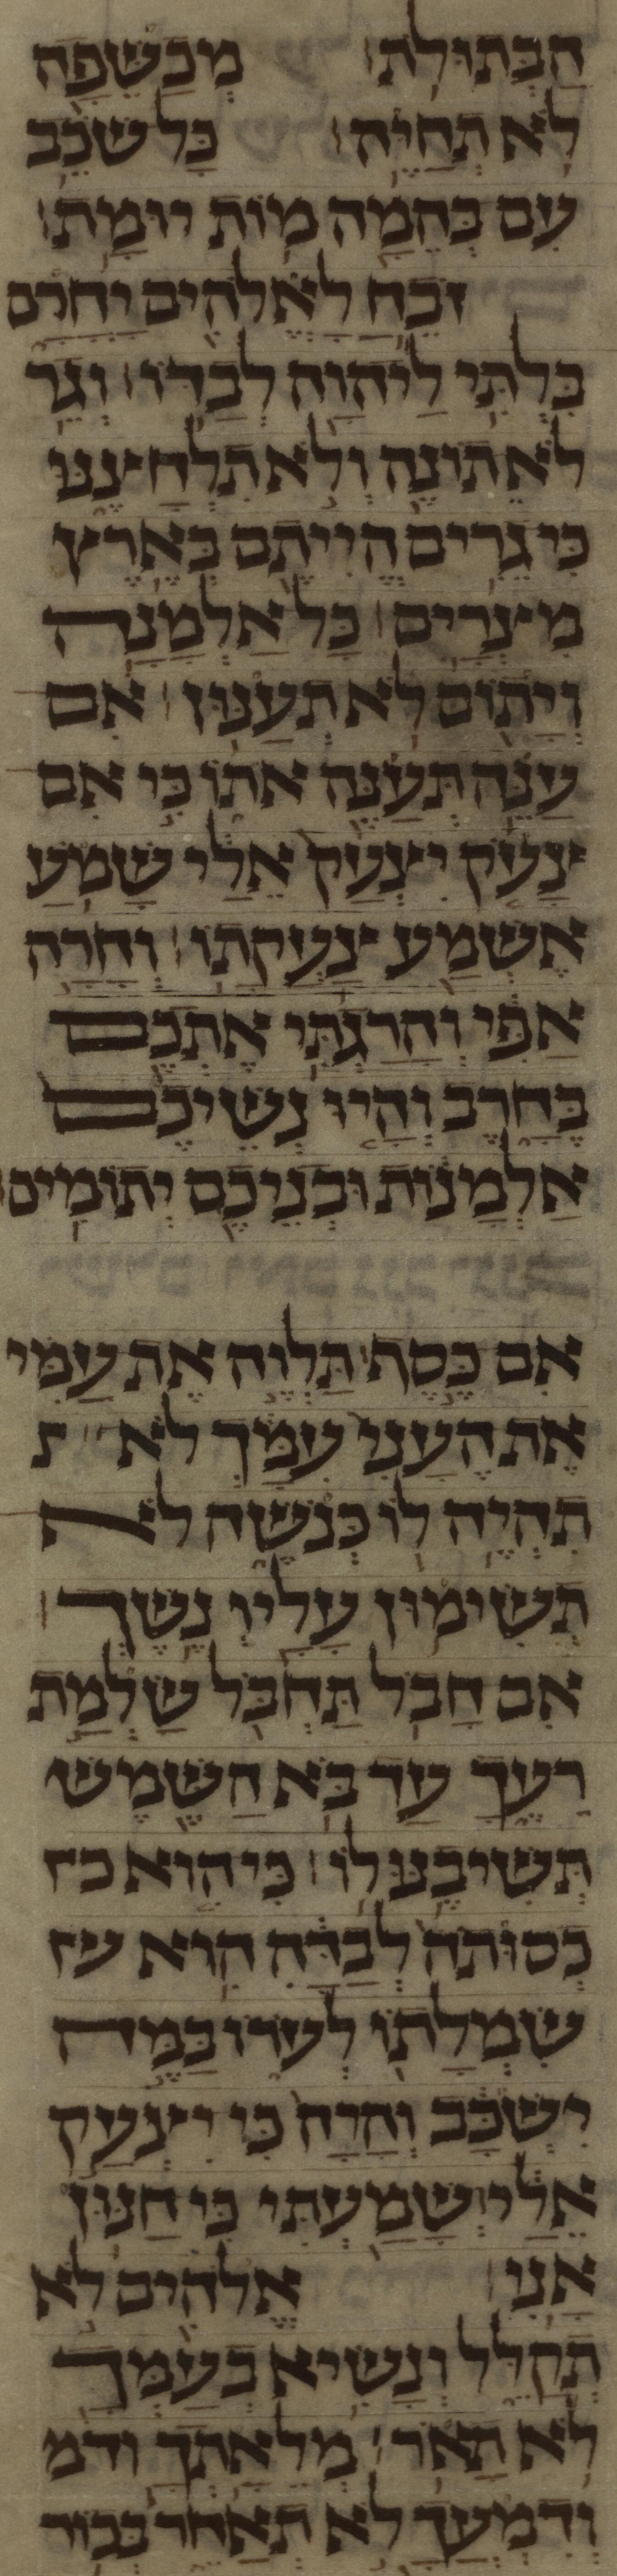 הבתולת מכשפה
לא תחיה כל שכב
עם בהמה מות יומת
זבח לאלהים יחרם
בלתי ליהוה לבדו וגר
לא תונה ולא תלחצנו
כי גרים הייתם בארץ
מצרים כל אלמנה
ויתום לא תענון אם
ענה תענה אתו כי אם
צעק יצעק אלי שמע
אשמע צעקתו וחרה
אפי והרגתי אתכם
בחרב והיו נשיכם
אלמנות ובניכם יתומים
אם כסף תלוה את עמי
את העני עמך לא ת
תהיה לו כנשה לא
תשימון עליו נשך
אם חבל תחבל שלמת
רעך עד בא השמש
תשיבנו לו כי הוא
כסותה לבדה הוא
שמלתו לערו במה
ישכב והיה כי יצעק
אלי ושמעתי כי חנון
אני אלהים לא
תקלל ונשיא בעמך
לא תאר מלאתך ודמ
ודמעך לא תאחר בכור